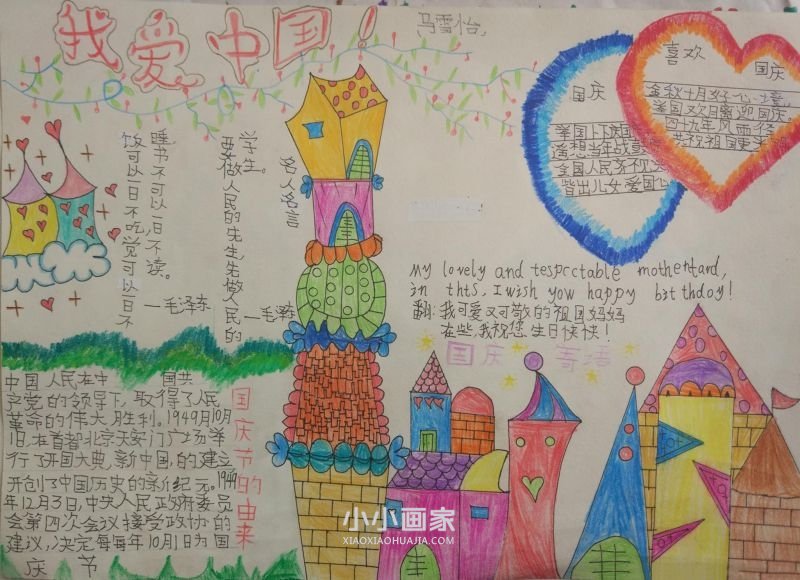 我爱中国！
马雪怡
喜欢
国庆
国庆
举国上下庆国
遥想当年战
全国人民齐
皆出儿女爱国心
金秋十月
举国欢腾迎国庆
四十九年风雨径
共祝祖国更
学生。
要做人民的先生，先做人民的
—毛泽东
名人名言
睡书不可以一日不读。
饭可以一日不吃，觉可以一日不
—毛泽东
My lovely and tespcctable mothentand,
in thts, I wish yow happy bitthdoy!
翻：我可爱又可敬的祖国妈妈
在些，我祝您生日快快！
国庆寄语
国庆节的由来
中国人民在中国共
产党的领导下，取得了人民
革命的伟大胜利。1949月10月
1日，在首都北京天安门广场举
行了开国大典，新中国，的建立
开创了中国历史的新纪元。1949
年12月3日，中央人民政府委员
会第四次会议接受政协的
建议，决定每每年10月1日为国
庆节
小小画家
XIAOXIAOHUAJIA.COM